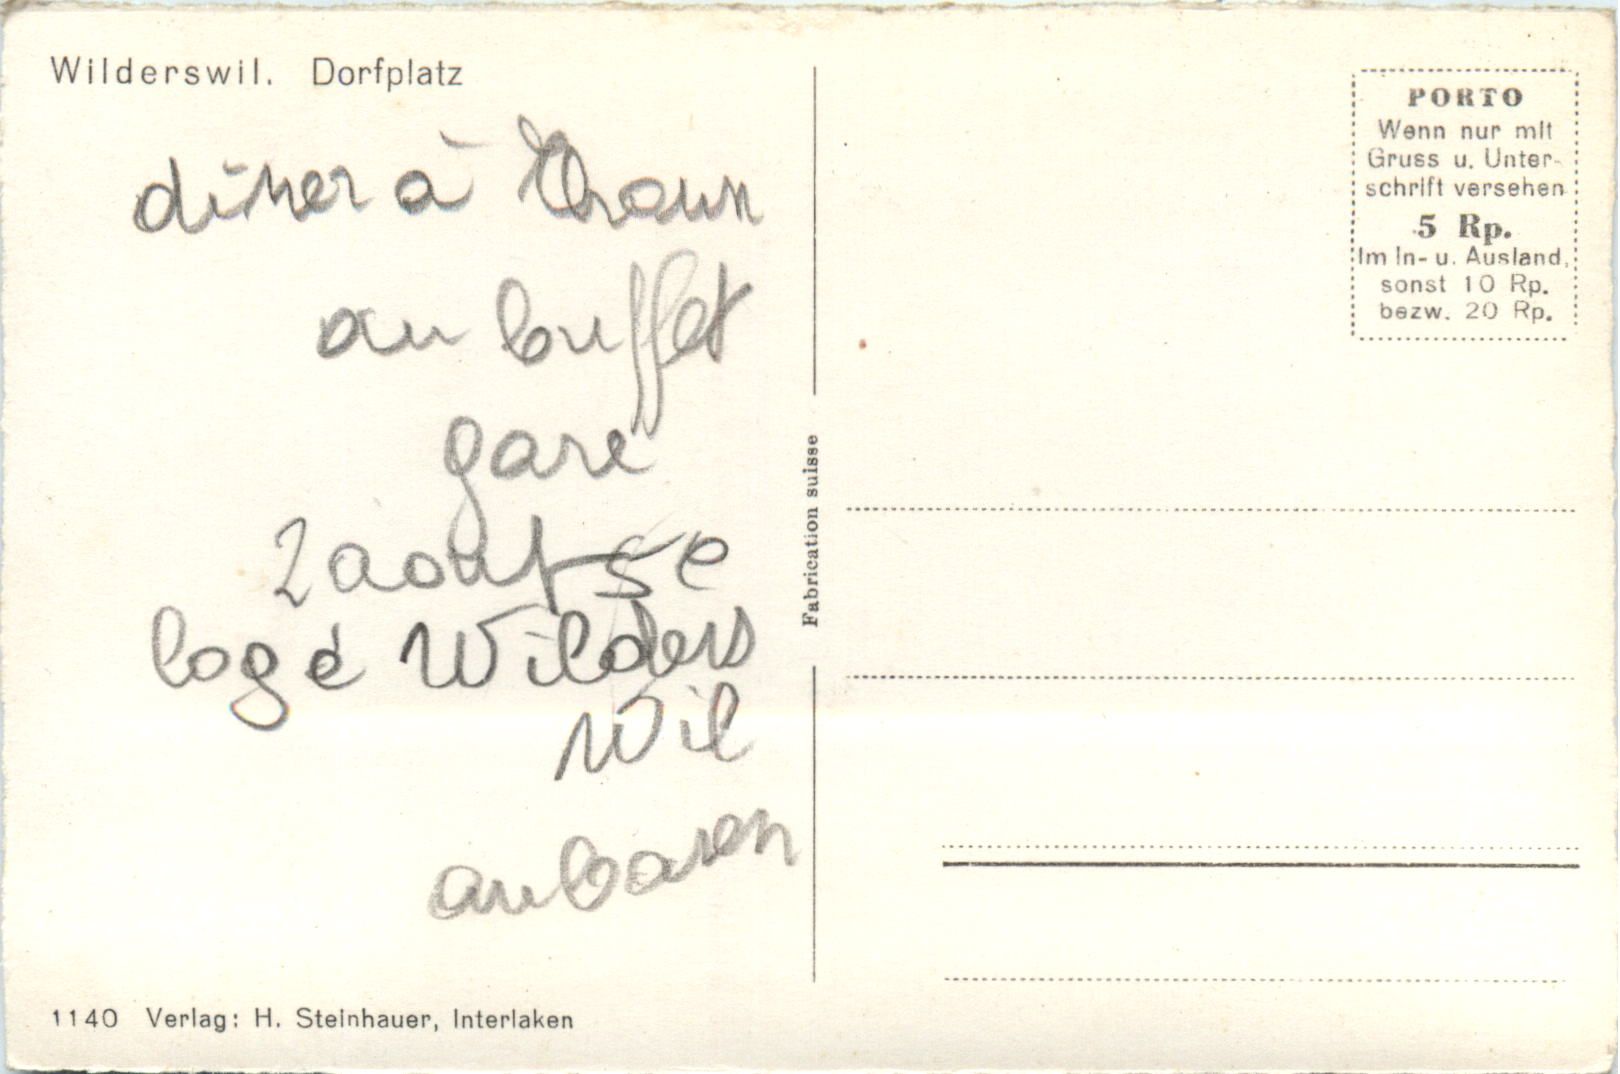 Wilderswil. Dorfplatz
dîner à Thoun
au buffet
gare
2 aout se
logé Wilders
Wil
au baren
1140 Verlag: H. Steinhauer, Interlaken
Fabrication suisse
PORTO
Wenn nur mit
Gruss u. Unter-
schrift versehen
5 Rp.
Im In- u. Ausland,
sonst 10 Rp.
bezw. 20 Rp.